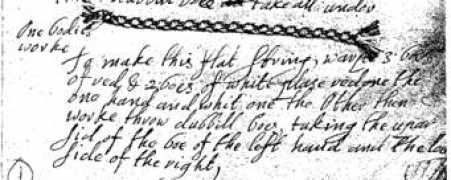 take all under
One bodies
worke
To make this flat string, warpe 3 boes
of red & 2 boes of white plase red one the
one hand and whit one the other then
worke throw dubbill boes, taking the upar
sid of the boe of the left hand and the
side of the right,
1